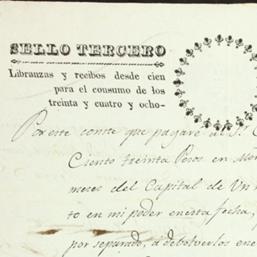 SELLO TERCERO
Libranzas y recibos desde cien
para el consumo de los
treinta y cuatro y ocho-
Por este conste que pagaré al S.
Ciento treinta Pesos en Mon
meses del Capital de Un m
to en mi poder en esta fecha,
por separado, á debolverlos en e